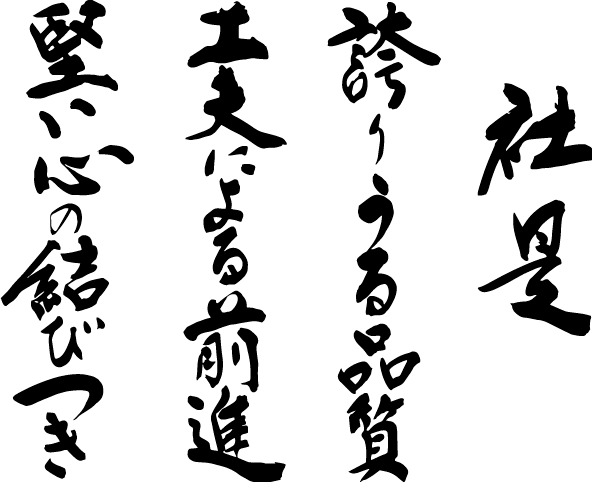 社是
誇りうる品質
工夫による前進
堅い心の結びつき